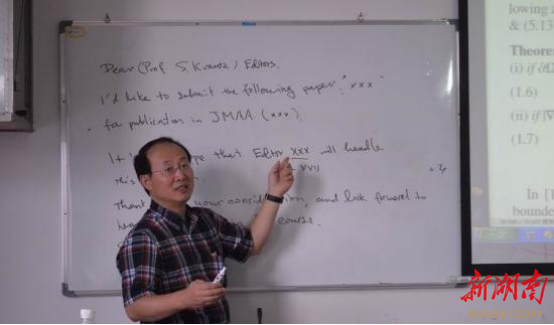 Dear (Prof S. Krantz / Editors.
I'd like to submit the following paper: "xxx"
for publication in JMAA (xxx).
It that Editor xxx will handle
this
Thank your consideration and look forward to
course.
lowing a
& (5.13
Theore
(i) if ∂Ω
(1.6)
(ii) if |∇
(1.7)
In [
bounde
新湖南